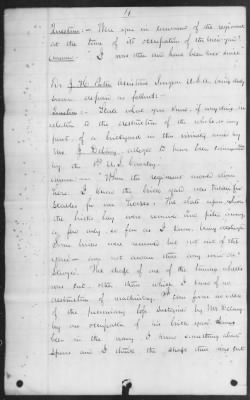 11
Question:– Were you in command of the regiment
at the time of its occupation of the brick yard?
Answer:– I was then and have been ever since.
Dr. J. H. Porter Assistant Surgeon U.S.A. being duly
sworn deposes as follows:–
Question:– State what you know, if anything in
relation to the destruction of the whole or any
part of a brickyard in this vicinity owned by
Mr. J. Delany alleged to have been
by the U.S. Cavalry.
Answer:– When the regiment moved down
here I know the brick yard was
stables for our horses. The sheds upon which
the bricks lay were removed and piles away,
a few only so far as I know, being destroyed.
Some bricks were removed but not out of the
yard – am not aware that any were de-
stroyed. The shaft of one of the wheels
was cut – other than which I know of no
destruction of machinery. I can form no idea
of the pecuniary loss sustained by Mr. Delany
by our occupation of his brick yard
been in the army I know something about
spires and I think the shaft that was cut